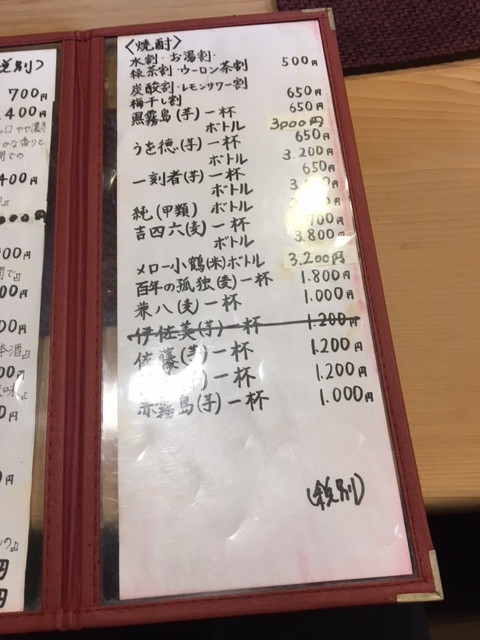 税別)
700円
400円
400円
000円
<焼酎>
水割・お湯割・
緑茶割・ウーロン茶割 500円
炭酸割・レモンサワー割 650円
梅干し割 650円
黒霧島(芋)一杯
ボトル 3000円
うを徳(芋)一杯 650円
ボトル 3.200円
一刻者(芋)一杯 650円
ボトル
純(甲類)ボトル
吉四六(麦)一杯 700円
ボトル 3.800円
メロー小鶴(米)ボトル 3.200円
百年の孤独(麦)一杯 1.800円
兼八(麦)一杯 1.000円
伊佐美(芋)一杯 1.200円
佐藤(芋)一杯 1.200円
(芋)一杯 1.200円
赤霧島(芋)一杯 1.000円
(税別)